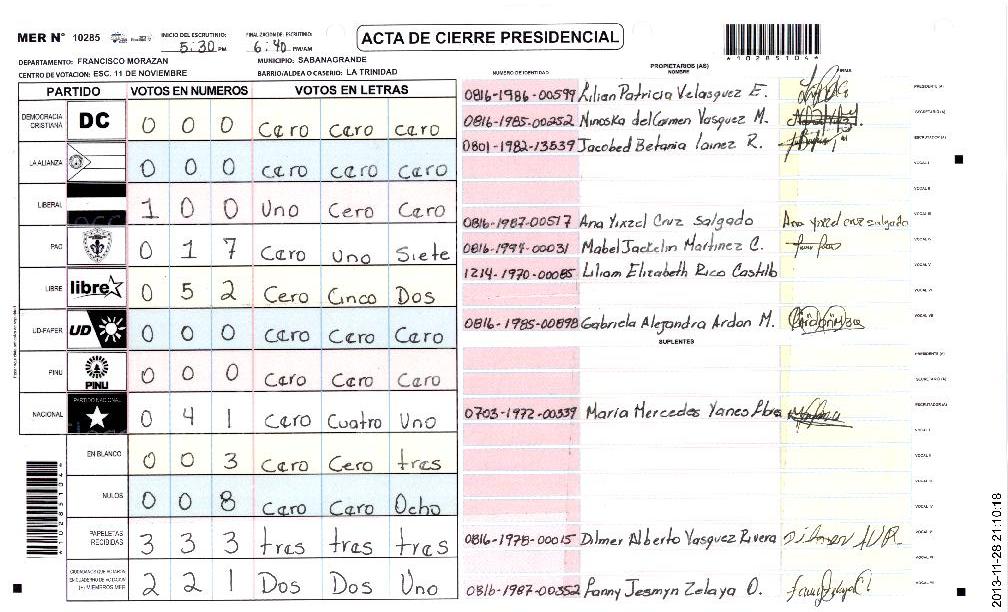 MER N° 10285
INICIO DEL ESCRUTINIO: 5:30 PM
FINALIZACION DE ESCRUTINIO: 6:40 PM/AM
ACTA DE CIERRE PRESIDENCIAL
*10285104*
DEPARTAMENTO: FRANCISCO MORAZAN
MUNICIPIO: SABANAGRANDE
CENTRO DE VOTACION: ESC. 11 DE NOVIEMBRE
BARRIO/ALDEA O CASERIO: LA TRINIDAD
PARTIDO VOTOS EN NUMEROS VOTOS EN LETRAS
DEMOCRACIA CRISTIANA DC 0 0 0 Caro Caro Caro
LA ALIANZA 0 0 0 Caro Caro Caro
LIBERAL 1 0 0 Uno Cero Caro
PAC 0 1 7 Caro Uno Siete
LIBRE libre 0 5 2 Cero Cinco Dos
UD-FAPER UD 0 0 0 Caro Caro Caro
PINU PINU 0 0 0 Caro Caro Caro
NACIONAL PARTIDO NACIONAL 0 4 1 Caro Cuatro Uno
EN BLANCO 0 0 3 Caro Cero tres
NULOS 0 0 8 Caro Caro Ocho
PAPELETAS RECIBIDAS 3 3 3 tres tres tres
CIUDADANOS QUE VOTARON EN CUADERNO DE VOTACION (+) MIEMBROS MER 2 2 1 Dos Dos Uno
*10285104*
PROPIETARIOS (AS)
NUMERO DE IDENTIDAD NOMBRE FIRMA
0816-1986-00599 Lilian Patricia Velasquez E. PRESIDENTE (A)
0816-1985-00252 Ninoska del Carmen Vasquez M. SECRETARIO (A)
0801-1982-13539 Jacobed Betania lainez R. ESCRUTADOR (A)
VOCAL I
VOCAL II
0816-1987-00517 Ana Yixzel Cruz Salgado Ana Yixzel cruz salgado VOCAL III
0816-1994-00031 Mabel Jackelin Martinez C. VOCAL IV
1214-1970-00085 Liliam Elizabeth Rico Castillo VOCAL V
VOCAL VI
0816-1985-00898 Gabriela Alejandra Ardon M. VOCAL VII
SUPLENTES
PRESIDENTE (A)
SECRETARIO (A)
0703-1972-00339 Maria Mercedes Yanes ESCRUTADOR (A)
VOCAL I
VOCAL II
VOCAL III
VOCAL IV
0816-1978-00015 Dilmer Alberto Vasquez Rivera VOCAL V
VOCAL VI
0816-1987-00352 Fanny Jesmyn Zelaya O. VOCAL VII
2013-11-28 21:10:18